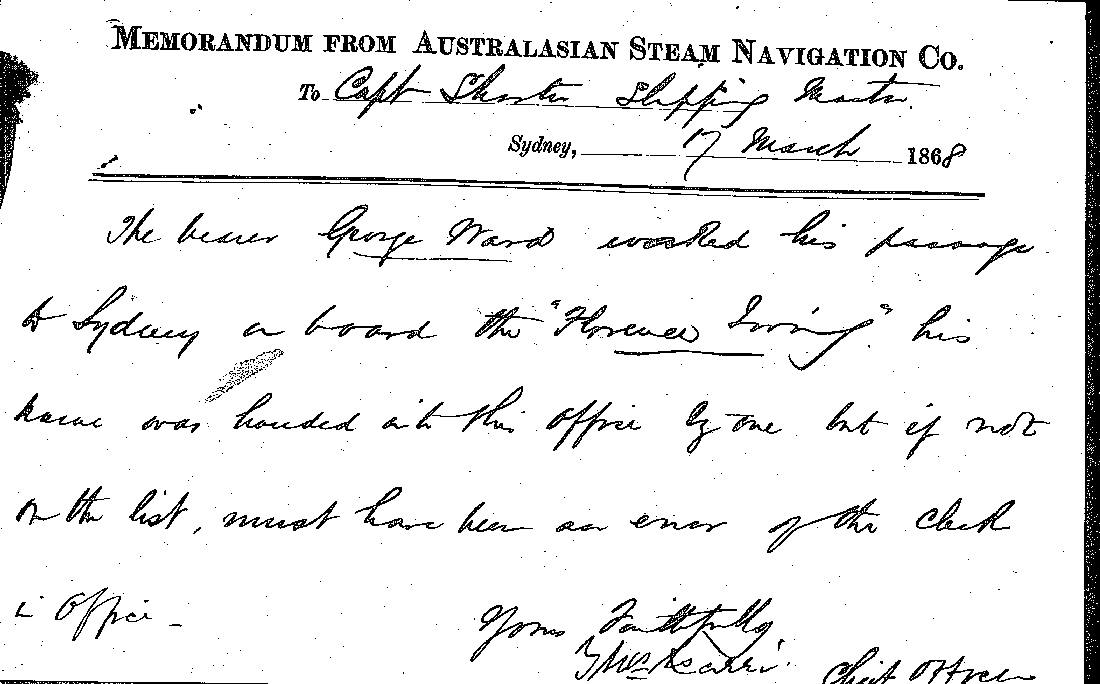 MEMORANDUM FROM AUSTRALASIAN STEAM NAVIGATION CO.
To Capt Shorter Shipping Master.
Sydney, 17 March 1868
The bearer George Ward worked his passage
to Sydney on board the "Florence Irving" his
name was handed into this office by me but if not
on the list, must have been an error of the Clerk
in Office -
Yours Faithfully,
Chief Officer